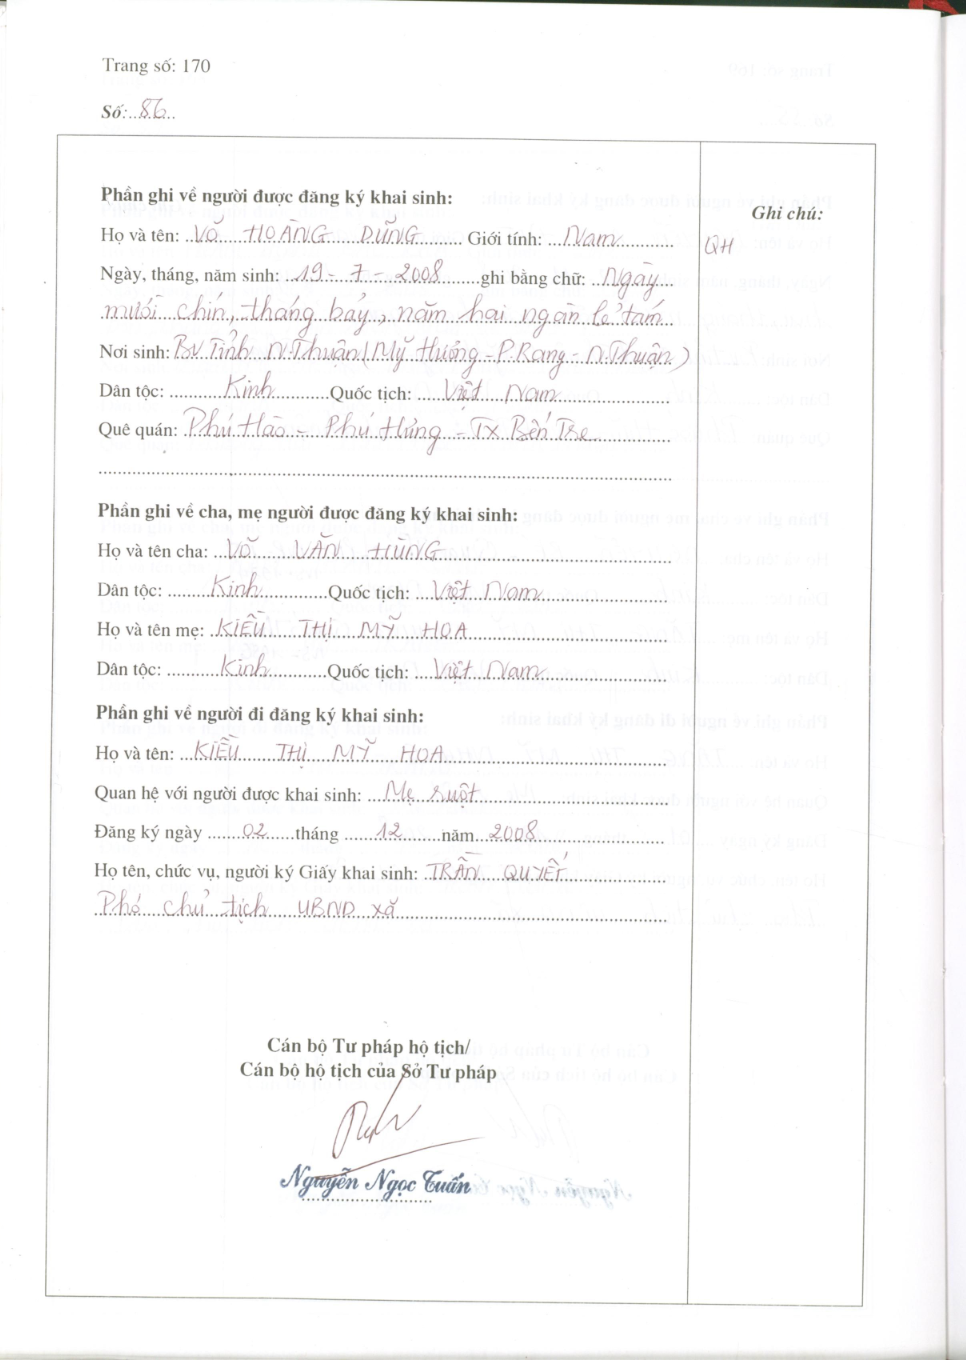 Trang số: 170
Số: 86
Phần ghi về người được đăng ký khai sinh:
Ghi chú:
Họ và tên: VÕ HOÀNG DŨNG Giới tính: Nam
QH
Ngày, tháng, năm sinh: 19 - 7 - 2008 ghi bằng chữ: Ngày
mười chín, tháng bảy, năm hai ngàn lẻ tám
Nơi sinh: BV Tỉnh N.Thuận (Mỹ Hương - P.Rang - N.Thuận)
Dân tộc: Kinh Quốc tịch: Việt Nam
Quê quán: Phú Hào - Phú Hưng - Tx Bến Tre
Phần ghi về cha, mẹ người được đăng ký khai sinh:
Họ và tên cha: VÕ VĂN HÙNG
Dân tộc: Kinh Quốc tịch: Việt Nam
Họ và tên mẹ: KIỀU THỊ MỸ HOA
Dân tộc: Kinh Quốc tịch: Việt Nam
Phần ghi về người đi đăng ký khai sinh:
Họ và tên: KIỀU THỊ MỸ HOA
Quan hệ với người được khai sinh: Mẹ ruột
Đăng ký ngày 02 tháng 12 năm 2008
Họ tên, chức vụ, người ký Giấy khai sinh: TRẦN QUYẾT
Phó chủ tịch UBND xã
Cán bộ Tư pháp hộ tịch/
Cán bộ hộ tịch của Sở Tư pháp
Nguyễn Ngọc Tuấn